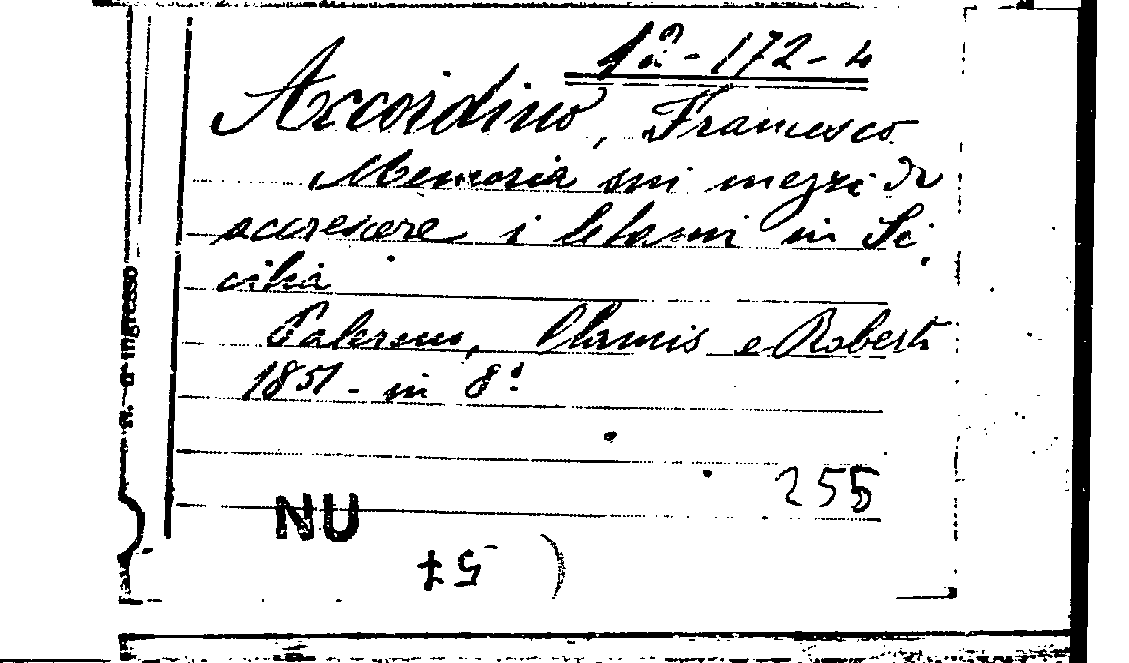 1ª - 172 - 4
Accordino, Francesco
Memoria sui mezzi di
accrescere i letami in Si
cilia
Palermo, Clamis e Roberti
1851 - in 8º
255
NU
N. d'ingresso